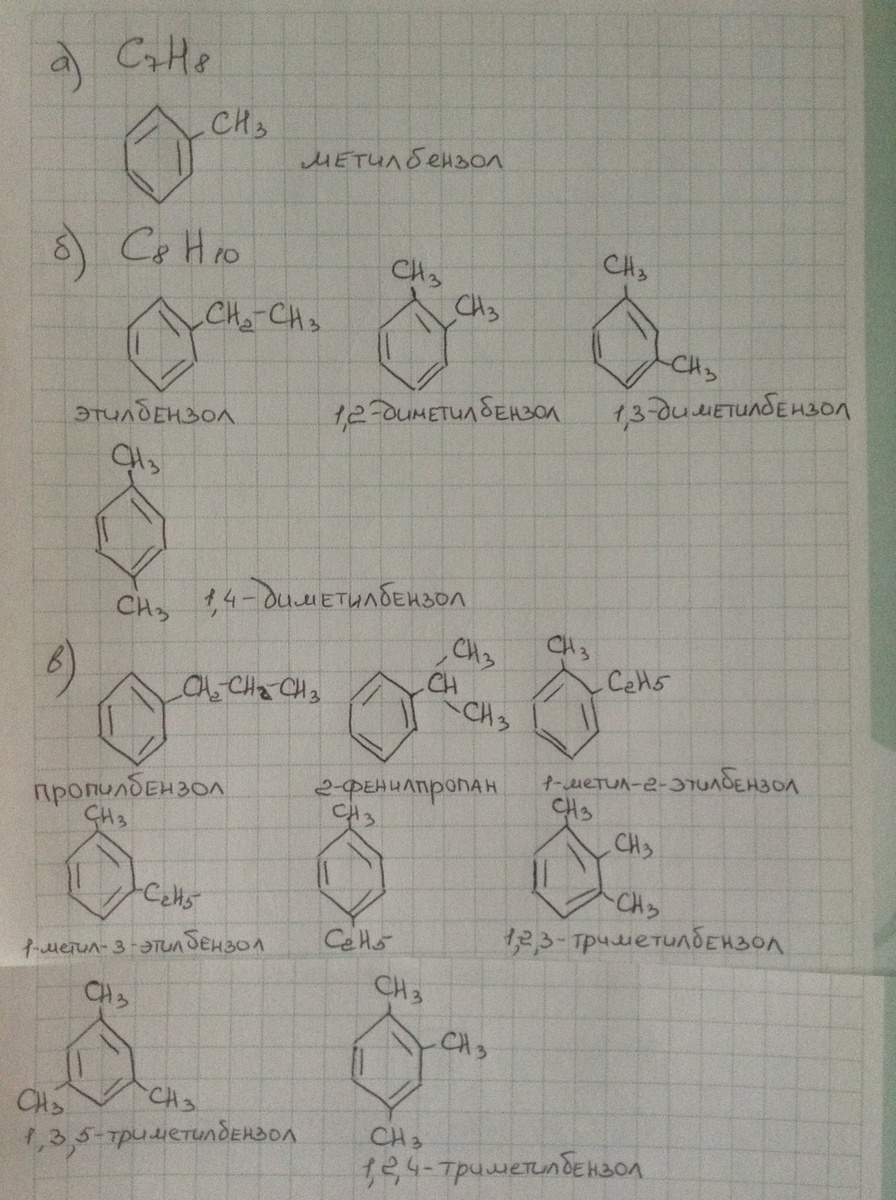 а) C7H8
CH3
метилбензол
б) C8H10
CH2-CH3
CH3
CH3
CH3
CH3
этилбензол
1,2-диметилбензол
1,3-диметилбензол
CH3
CH3
1,4-диметилбензол
в)
CH2-CH2-CH3
CH3
CH
CH3
CH3
C2H5
пропилбензол
2-фенилпропан
1-метил-2-этилбензол
CH3
C2H5
CH3
C2H5
CH3
CH3
CH3
1-метил-3-этилбензол
1,2,3-триметилбензол
CH3
CH3
CH3
1,3,5-триметилбензол
CH3
CH3
CH3
1,2,4-триметилбензол